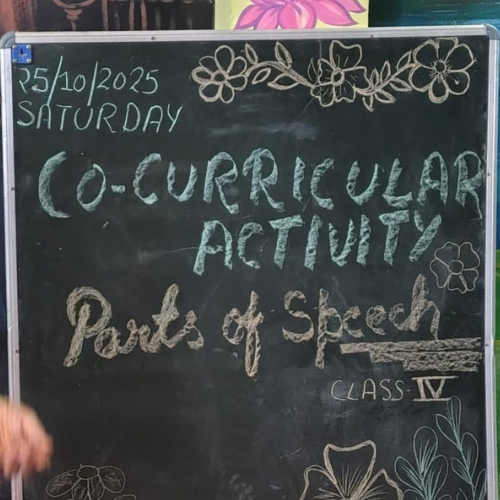 25/10/2025
SATURDAY
CO-CURRICULAR
ACTIVITY
Parts of Speech
CLASS-IV